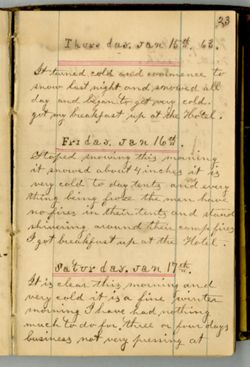 23
Thursday, Jan 15th, 63.
It turned cold and commence to
snow last night and snowed all
day and began to get very cold.
got my breakfast up at the Hotel.
Friday, Jan 16th.
Stoped snowing this morning
it snowed about 4 inches it is
very cold to day tents and every
thing being froze the men have
no fires in their tents and stand
shivering around their camp fires
I got breakfast up at the Hotel.
Saturday, Jan 17th.
It is clear this morning and
very cold it is a fine winter
morning I have had nothing
much to do for three or four days
business not very pressing at